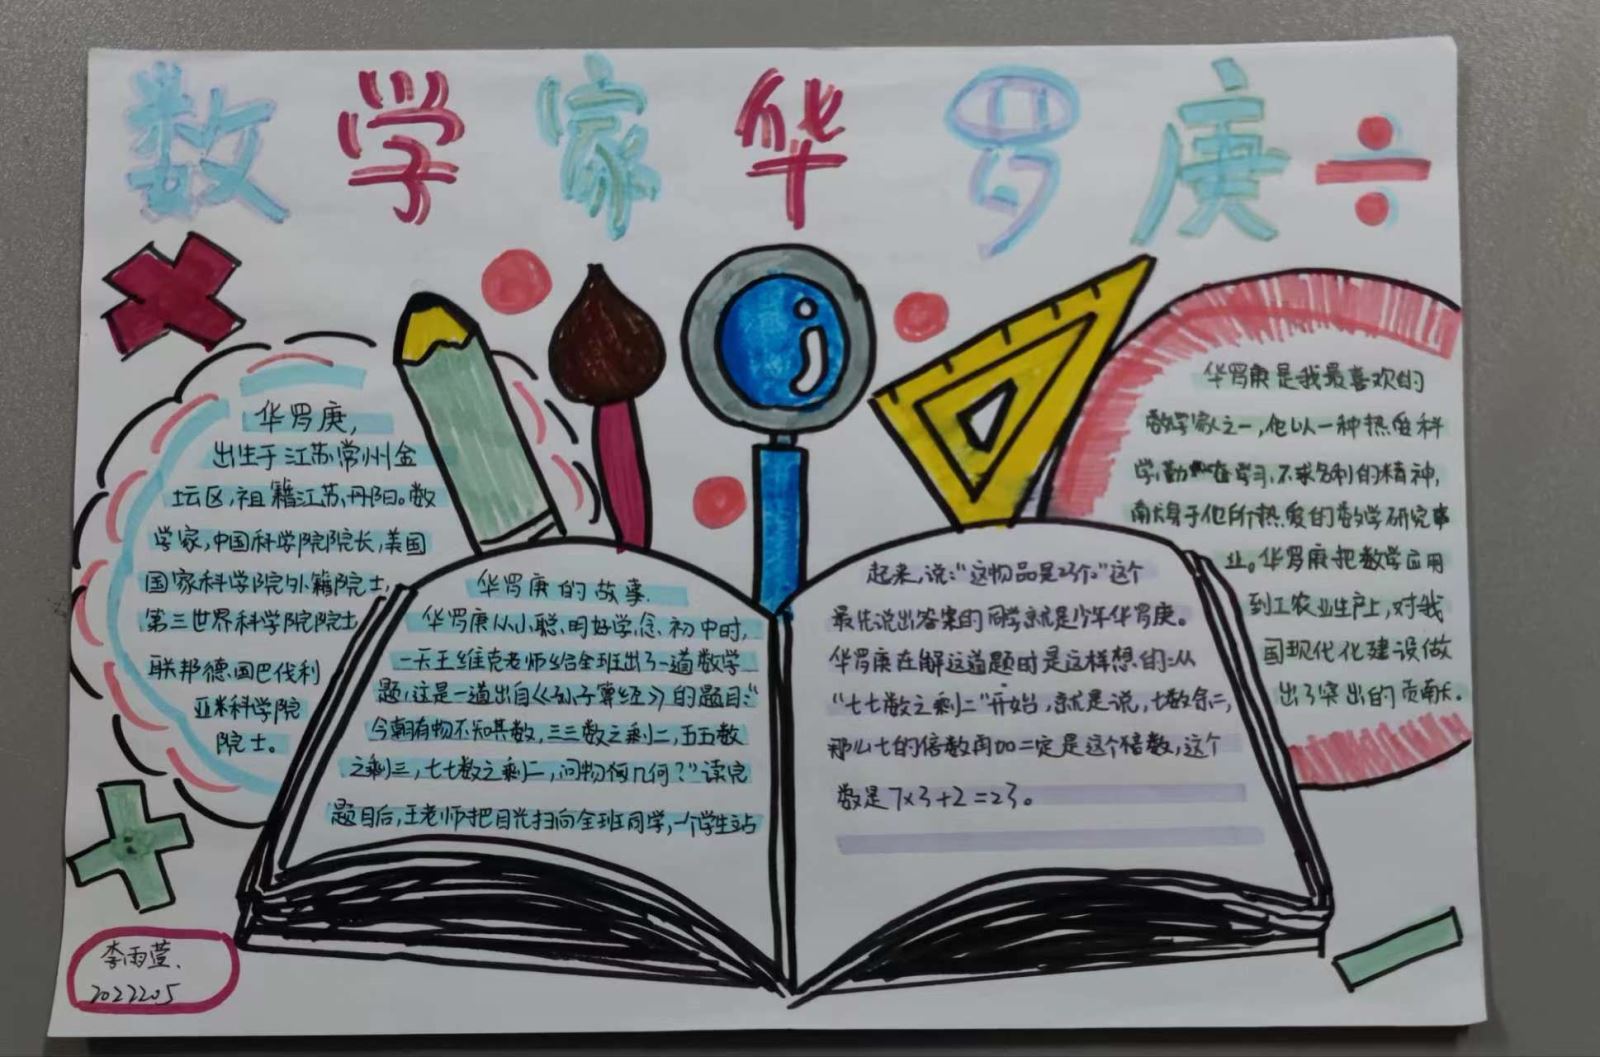 数学家华罗庚
华罗庚,
出生于江苏常州金
坛区,祖籍江苏丹阳。数
学家,中国科学院院长,美国
国家科学院外籍院士,
第三世界科学院院士
联邦德国巴伐利
亚米科学院
院士。
华罗庚的故事.
华罗庚从小聪明好学,念初中时,
一天王维克老师给全班出了一道数学
题,这是一道出自《孙子算经》的题目:“
今朝有物不知其数,三三数之剩二,五五数
之剩三,七七数之剩二,问物有几何?”读完
题目后,王老师把目光扫向全班同学,一个学生站
起来,说:“这物品是23个。”这个
最先说出答案的同学就是少年华罗庚。
华罗庚在解这道题时是这样想的:从
“七七数之剩二”开始,就是说,七数余二,
那么七的倍数再加二定是这个倍数,这个
数是7×3+2=23。
华罗庚是我最喜欢的
数学家之一,他以一种热爱科
学,勤奋学习,不求名利的精神,
献身于他所热爱的数学研究事
业。华罗庚把数学应用
到工农业生产上,对我
国现代化建设做
出了突出的贡献.
李雨萱.
2022205